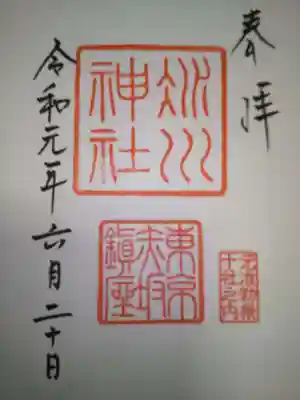 奉拝
氷川
神社
東京
赤坂
鎮座
令和元年六月二十日